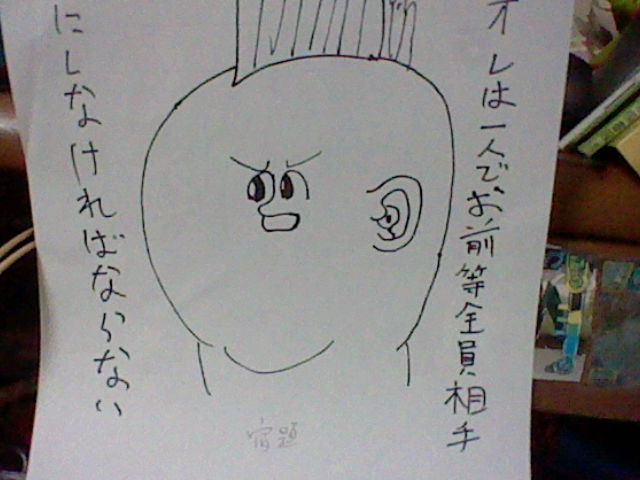 オレは一人でお前等全員相手
にしなければならない
宿題